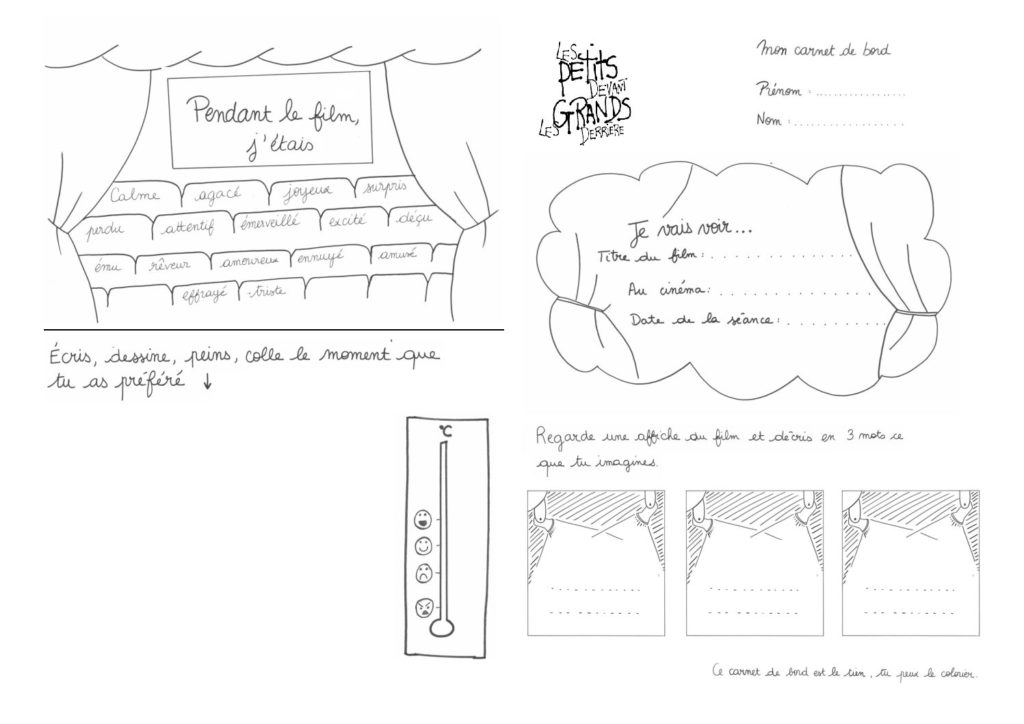 Pendant le film,
j'étais
Calme agacé joyeux surpris
perdu attentif émerveillé excité déçu
ému rêveur amoureux ennuyé amusé
effrayé triste
Écris, dessine, peins, colle le moment que
tu as préféré ↓
°C
LES
PETITS
DEVANT
GRANDS
LES DERRIÈRE
Mon carnet de bord
Prénom : .................
Nom : .................
Je vais voir...
Titre du film : ..............
Au cinéma : ..............
Date de la séance : ..........
Regarde une affiche du film et décris en 3 mots ce
que tu imagines.
Ce carnet de bord est le tien, tu peux le colorier.